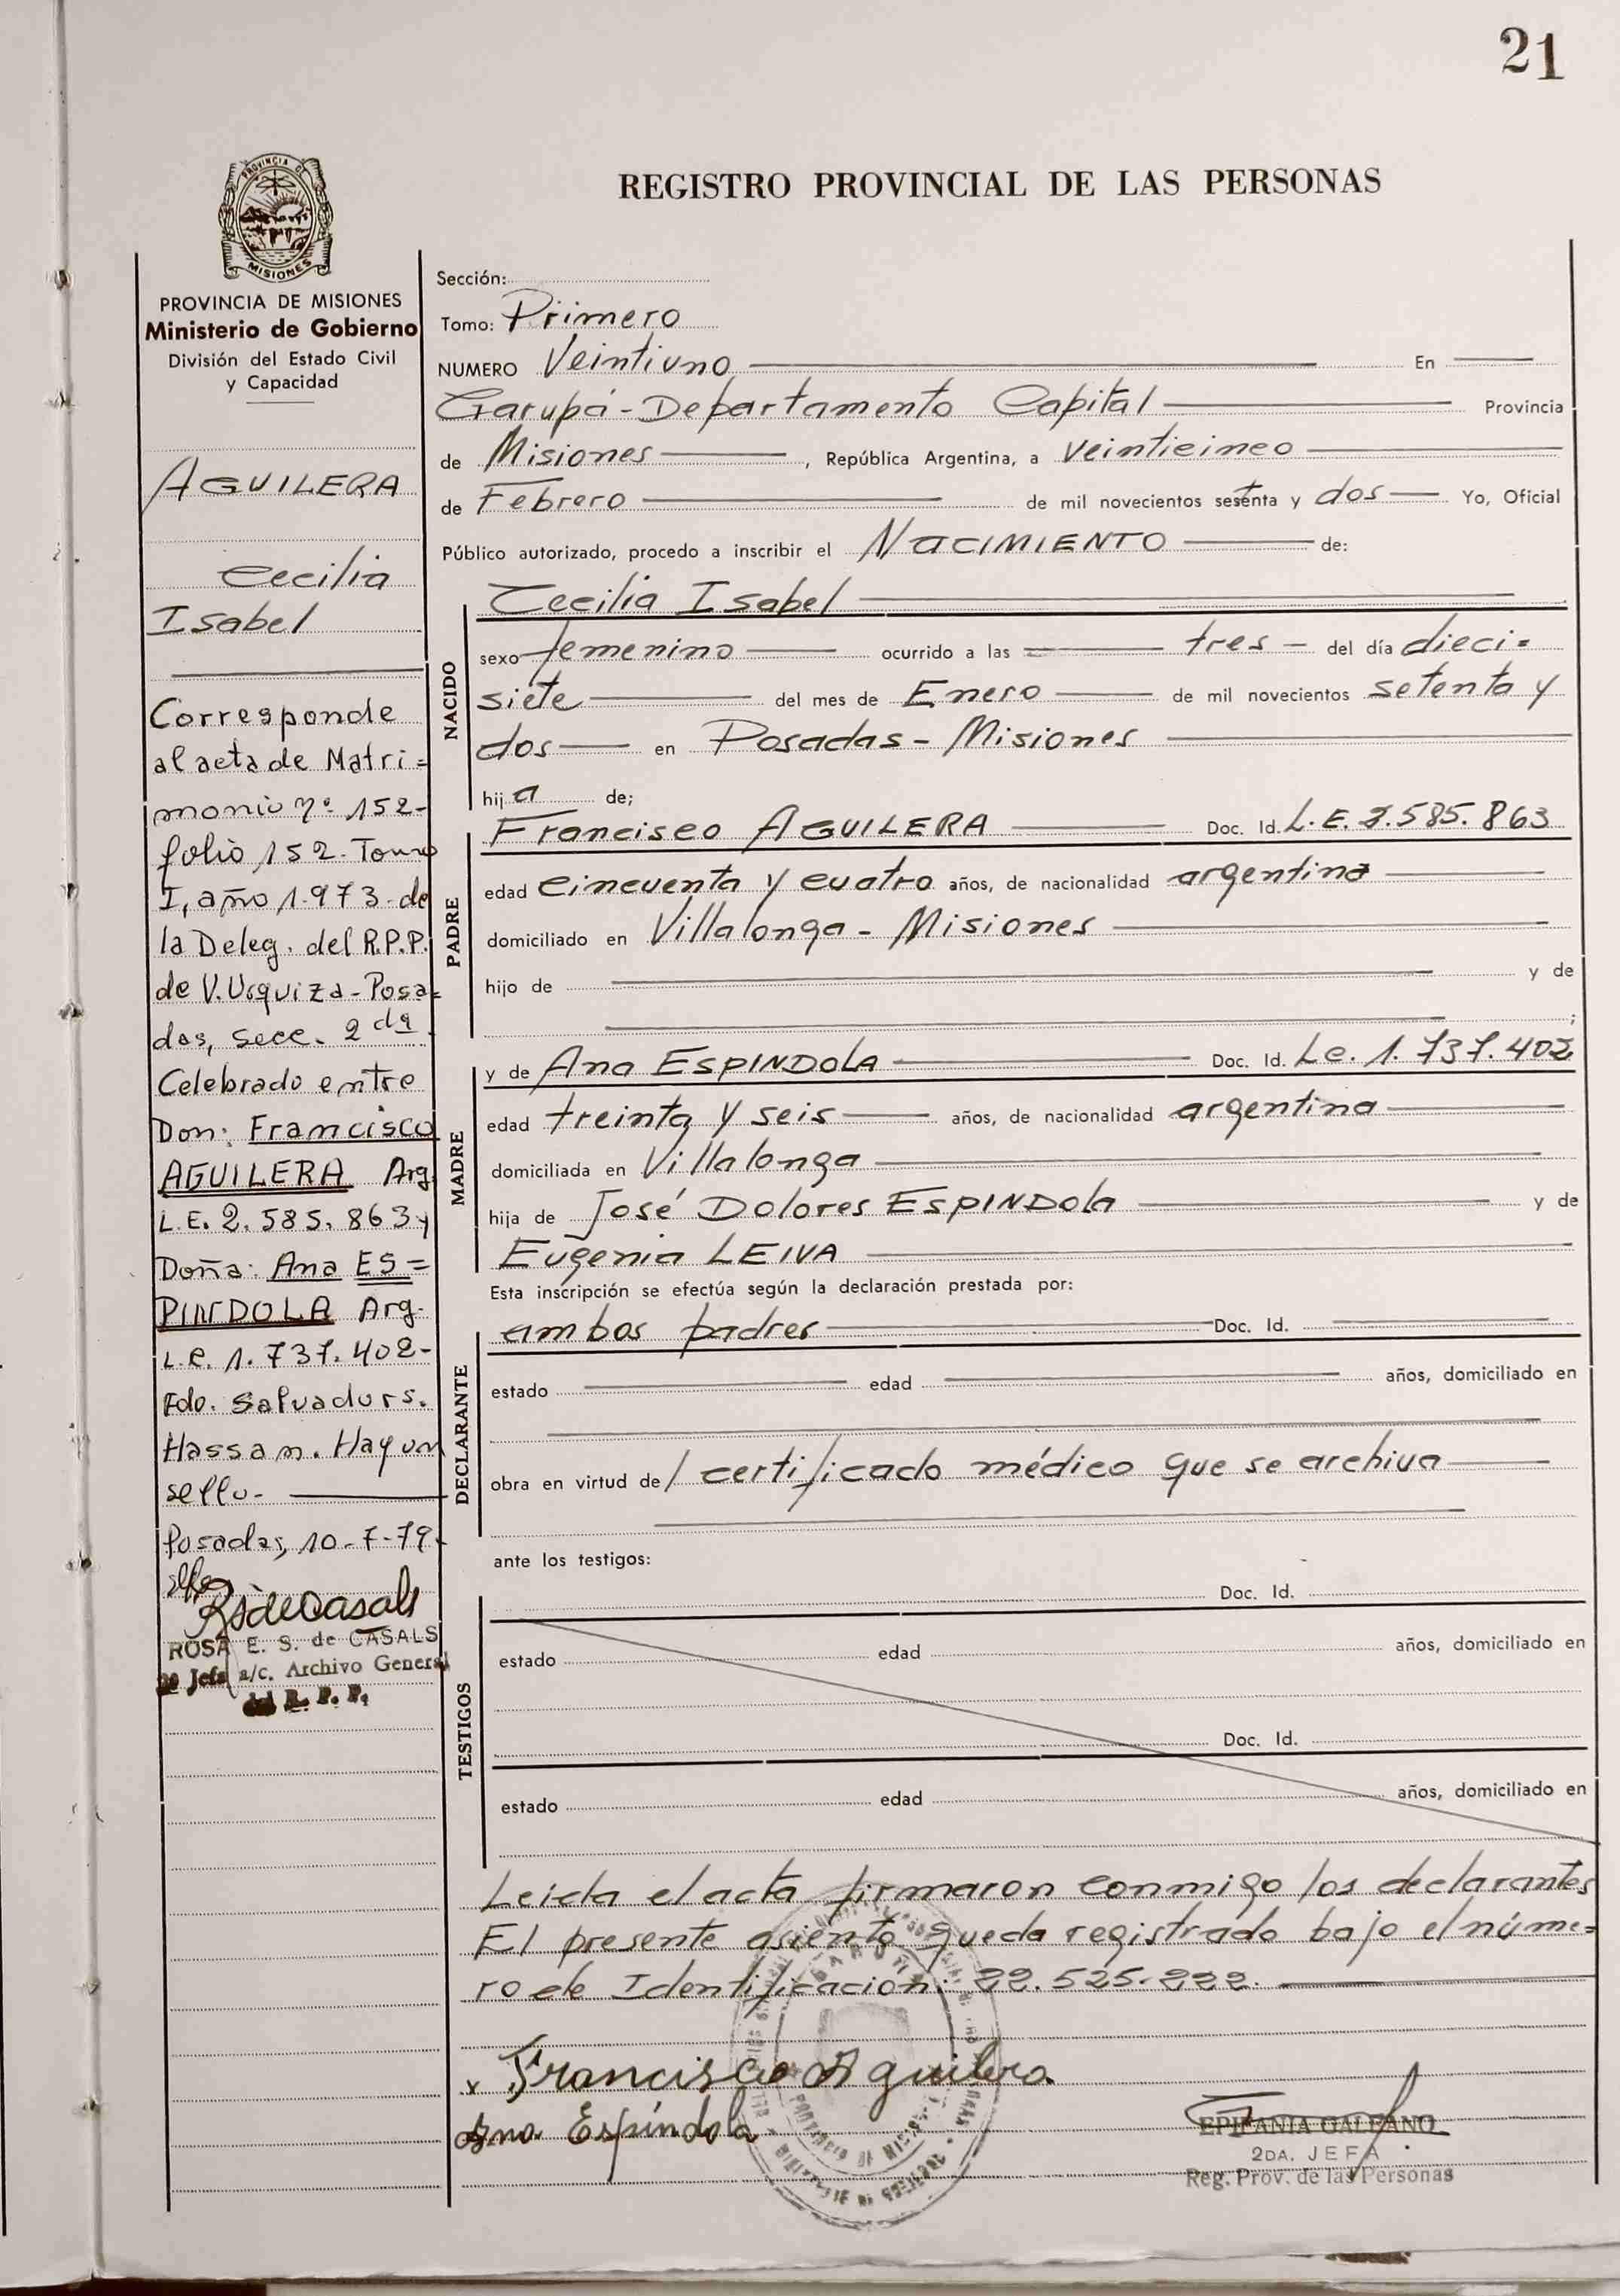 21
REGISTRO PROVINCIAL DE LAS PERSONAS
PROVINCIA DE
MISIONES
PROVINCIA DE MISIONES
Ministerio de Gobierno
División del Estado Civil
y Capacidad
AGUILERA
Cecilia
Isabel
Corresponde
al acta de Matri=
monio nº 152-
folio 152. Tomo
I, año 1.973. de
la Deleg. del R.P.P.
de V. Urquiza-Posa=
das, secc. 2da
Celebrado entre
Don: Francisco
AGUILERA Arg.
L.E. 2.585.863 y
Doña: Ana ES=
PINDOLA Arg.
L.C. 1.737.402-
Fdo. Salvador S.
Hassan. Hay un
sello-
Posadas, 10-7-79.
ROSA E. S. de CASALS
2º Jefa a/c. Archivo General
del R. P. P.
Sección:
Tomo: Primero
NUMERO Veintiuno En
Garupá-Departamento Capital Provincia
de Misiones , República Argentina, a veinticinco
de Febrero de mil novecientos setenta y dos Yo, Oficial
Público autorizado, procedo a inscribir el NACIMIENTO de:
NACIDO
Cecilia Isabel
sexo femenino ocurrido a las tres del día dieci=
siete del mes de Enero de mil novecientos setenta y
dos en Posadas - Misiones
hija de;
PADRE
Francisco AGUILERA Doc. Id. L.E. 2.585.863
edad cincuenta y cuatro años, de nacionalidad argentina
domiciliado en Villalonga - Misiones
hijo de y de
;
MADRE
y de Ana ESPINDOLA Doc. Id. L.C. 1.737.402
edad treinta y seis años, de nacionalidad argentina
domiciliada en Villalonga
hija de José Dolores ESPINDOLA y de
Eugenia LEIVA
Esta inscripción se efectúa según la declaración prestada por:
DECLARANTE
ambos padres Doc. Id.
estado edad años, domiciliado en
obra en virtud de/ certificado médico que se archiva
ante los testigos:
TESTIGOS
Doc. Id.
estado edad años, domiciliado en
Doc. Id.
estado edad años, domiciliado en
Leída el acta firmaron conmigo los declarantes
El presente asiento queda registrado bajo el núme=
ro de Identificación: 22.525.222.
x Francisco Aguilera
Ana Espíndola
EPIFANIA GALEANO
2DA. JEFA
Reg. Prov. de las Personas